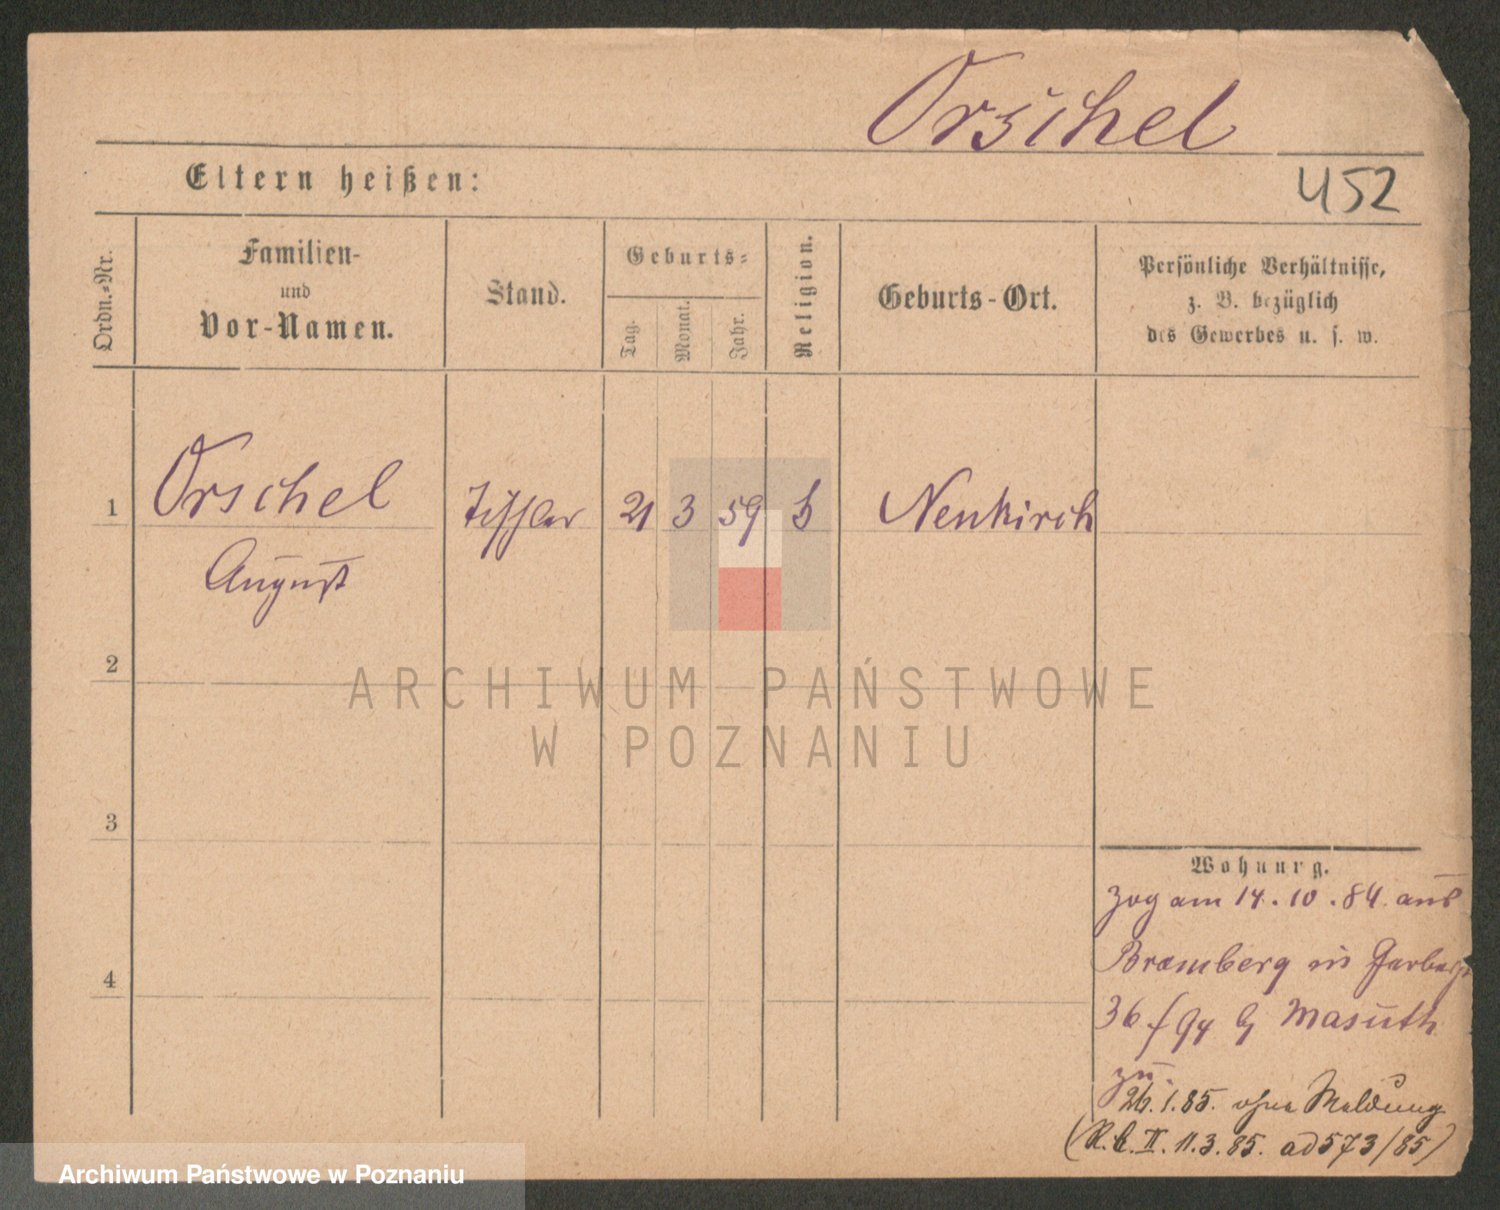 Orschel
Eltern heißen:
452
Ordn.-Nr.
Familien-
und
Vor-Namen.
Stand.
Geburts-
Tag.
Monat.
Jahr.
Religion.
Geburts-Ort.
Persönliche Verhältnisse,
z. B. bezüglich
des Gewerbes u. s. w.
1
Orschel
August
Tischler
21
3
59
Neukirch
2
ARCHIWUM PAŃSTWOWE
W POZNANIU
3
4
Wohnung.
zog am 14.10.84 aus
Bromberg in
36 Masuth
zu.
26.1.85. ohne Meldung
(R.b. II. 11.3.85. ad 573/85)
Archiwum Państwowe w Poznaniu